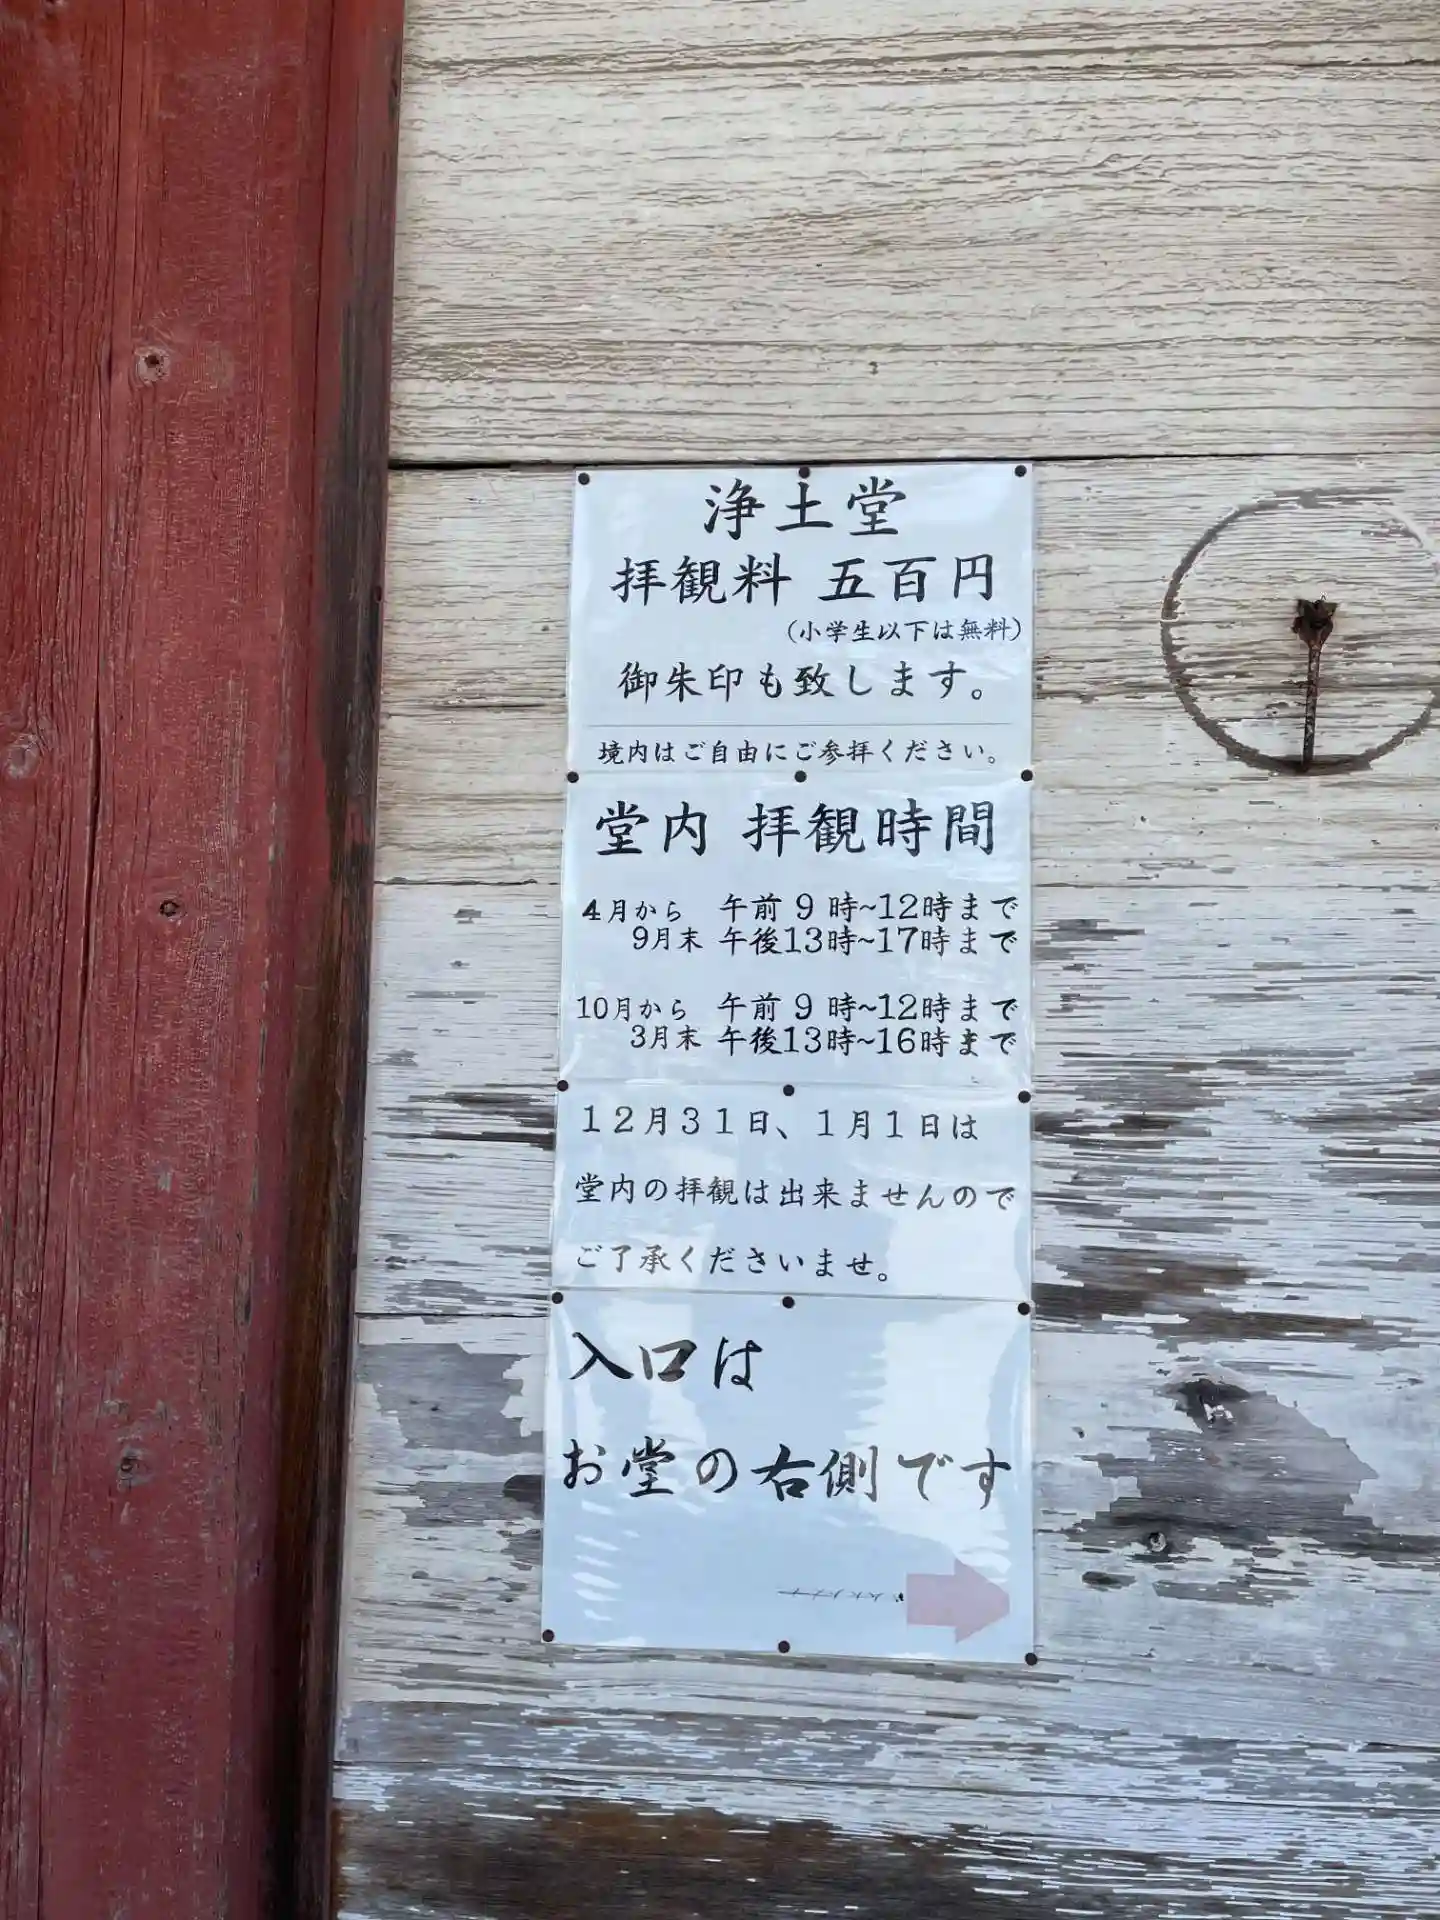 浄土堂
拝観料 五百円
(小学生以下は無料)
御朱印も致します。
境内はご自由にご参拝ください。
堂内 拝観時間
4月から 午前 9 時~12時まで
9月末 午後13時~17時まで
10月から 午前 9 時~12時まで
3月末 午後13時~16時まで
12月31日、1月1日は
堂内の拝観は出来ませんので
ご了承くださいませ。
入口は
お堂の右側です